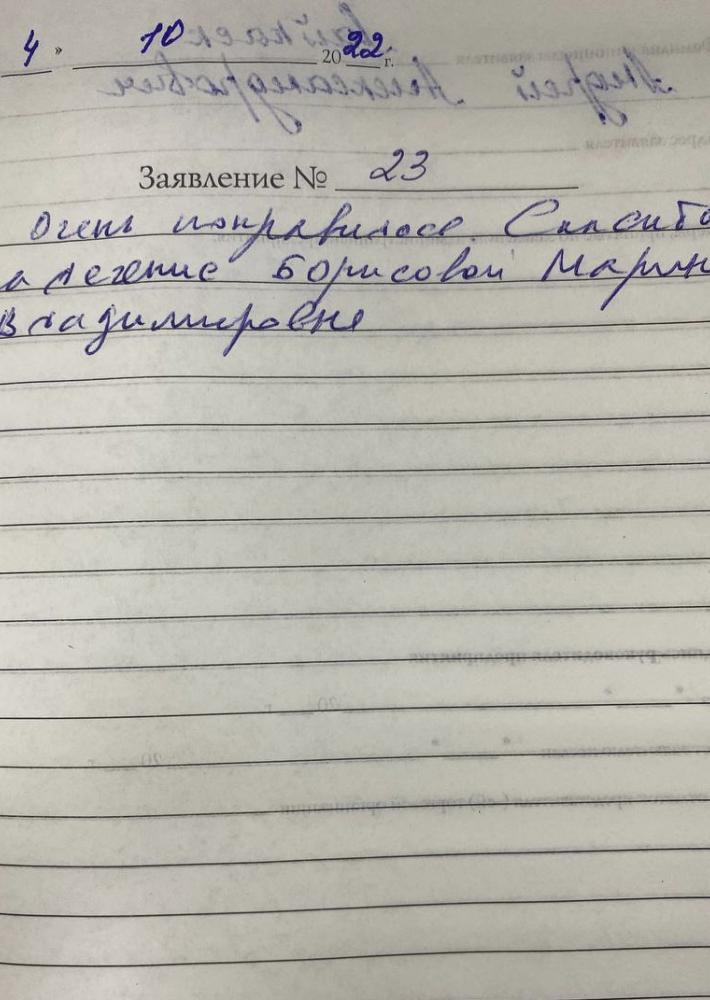 4 » 10 2022 г.
Заявление № 23
Очень понравилось. Спасибо
а лечение Борисовой Марин
Владимировне